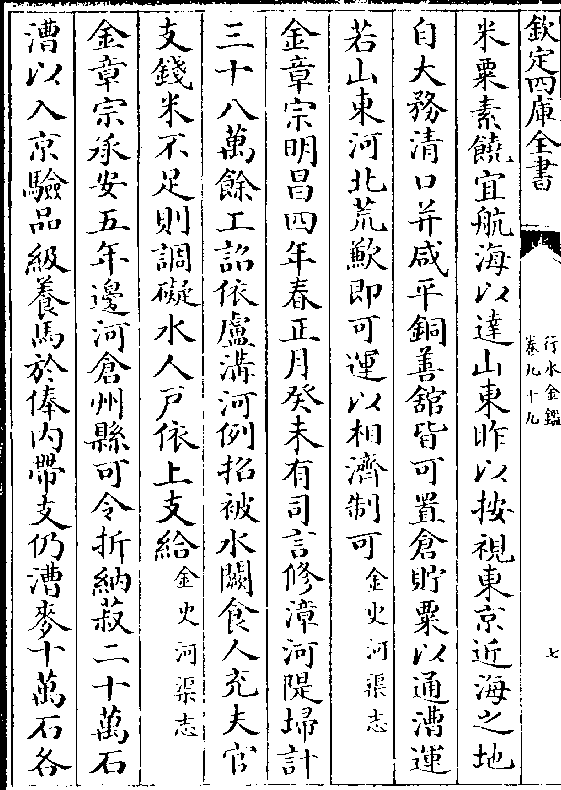 欽定四庫全書
行水金鑑
卷九十九
七
米粟素饒宜航海以達山東昨以按視東京近海之地
自大務清口并咸平銅善舘皆可置倉貯粟以通漕運
若山東河北荒歉即可運以相濟制可金史河渠志
金章宗明昌四年春正月癸未有司言修漳河隄埽計
三十八萬餘工詔依盧溝河例招被水闕食人充夫官
支錢米不足則調礙水人戶依上支給金史河渠志
金章宗承安五年邊河倉州縣可令折納菽二十萬石
漕以入京驗品級養馬於俸内帶支仍漕麥十萬石各